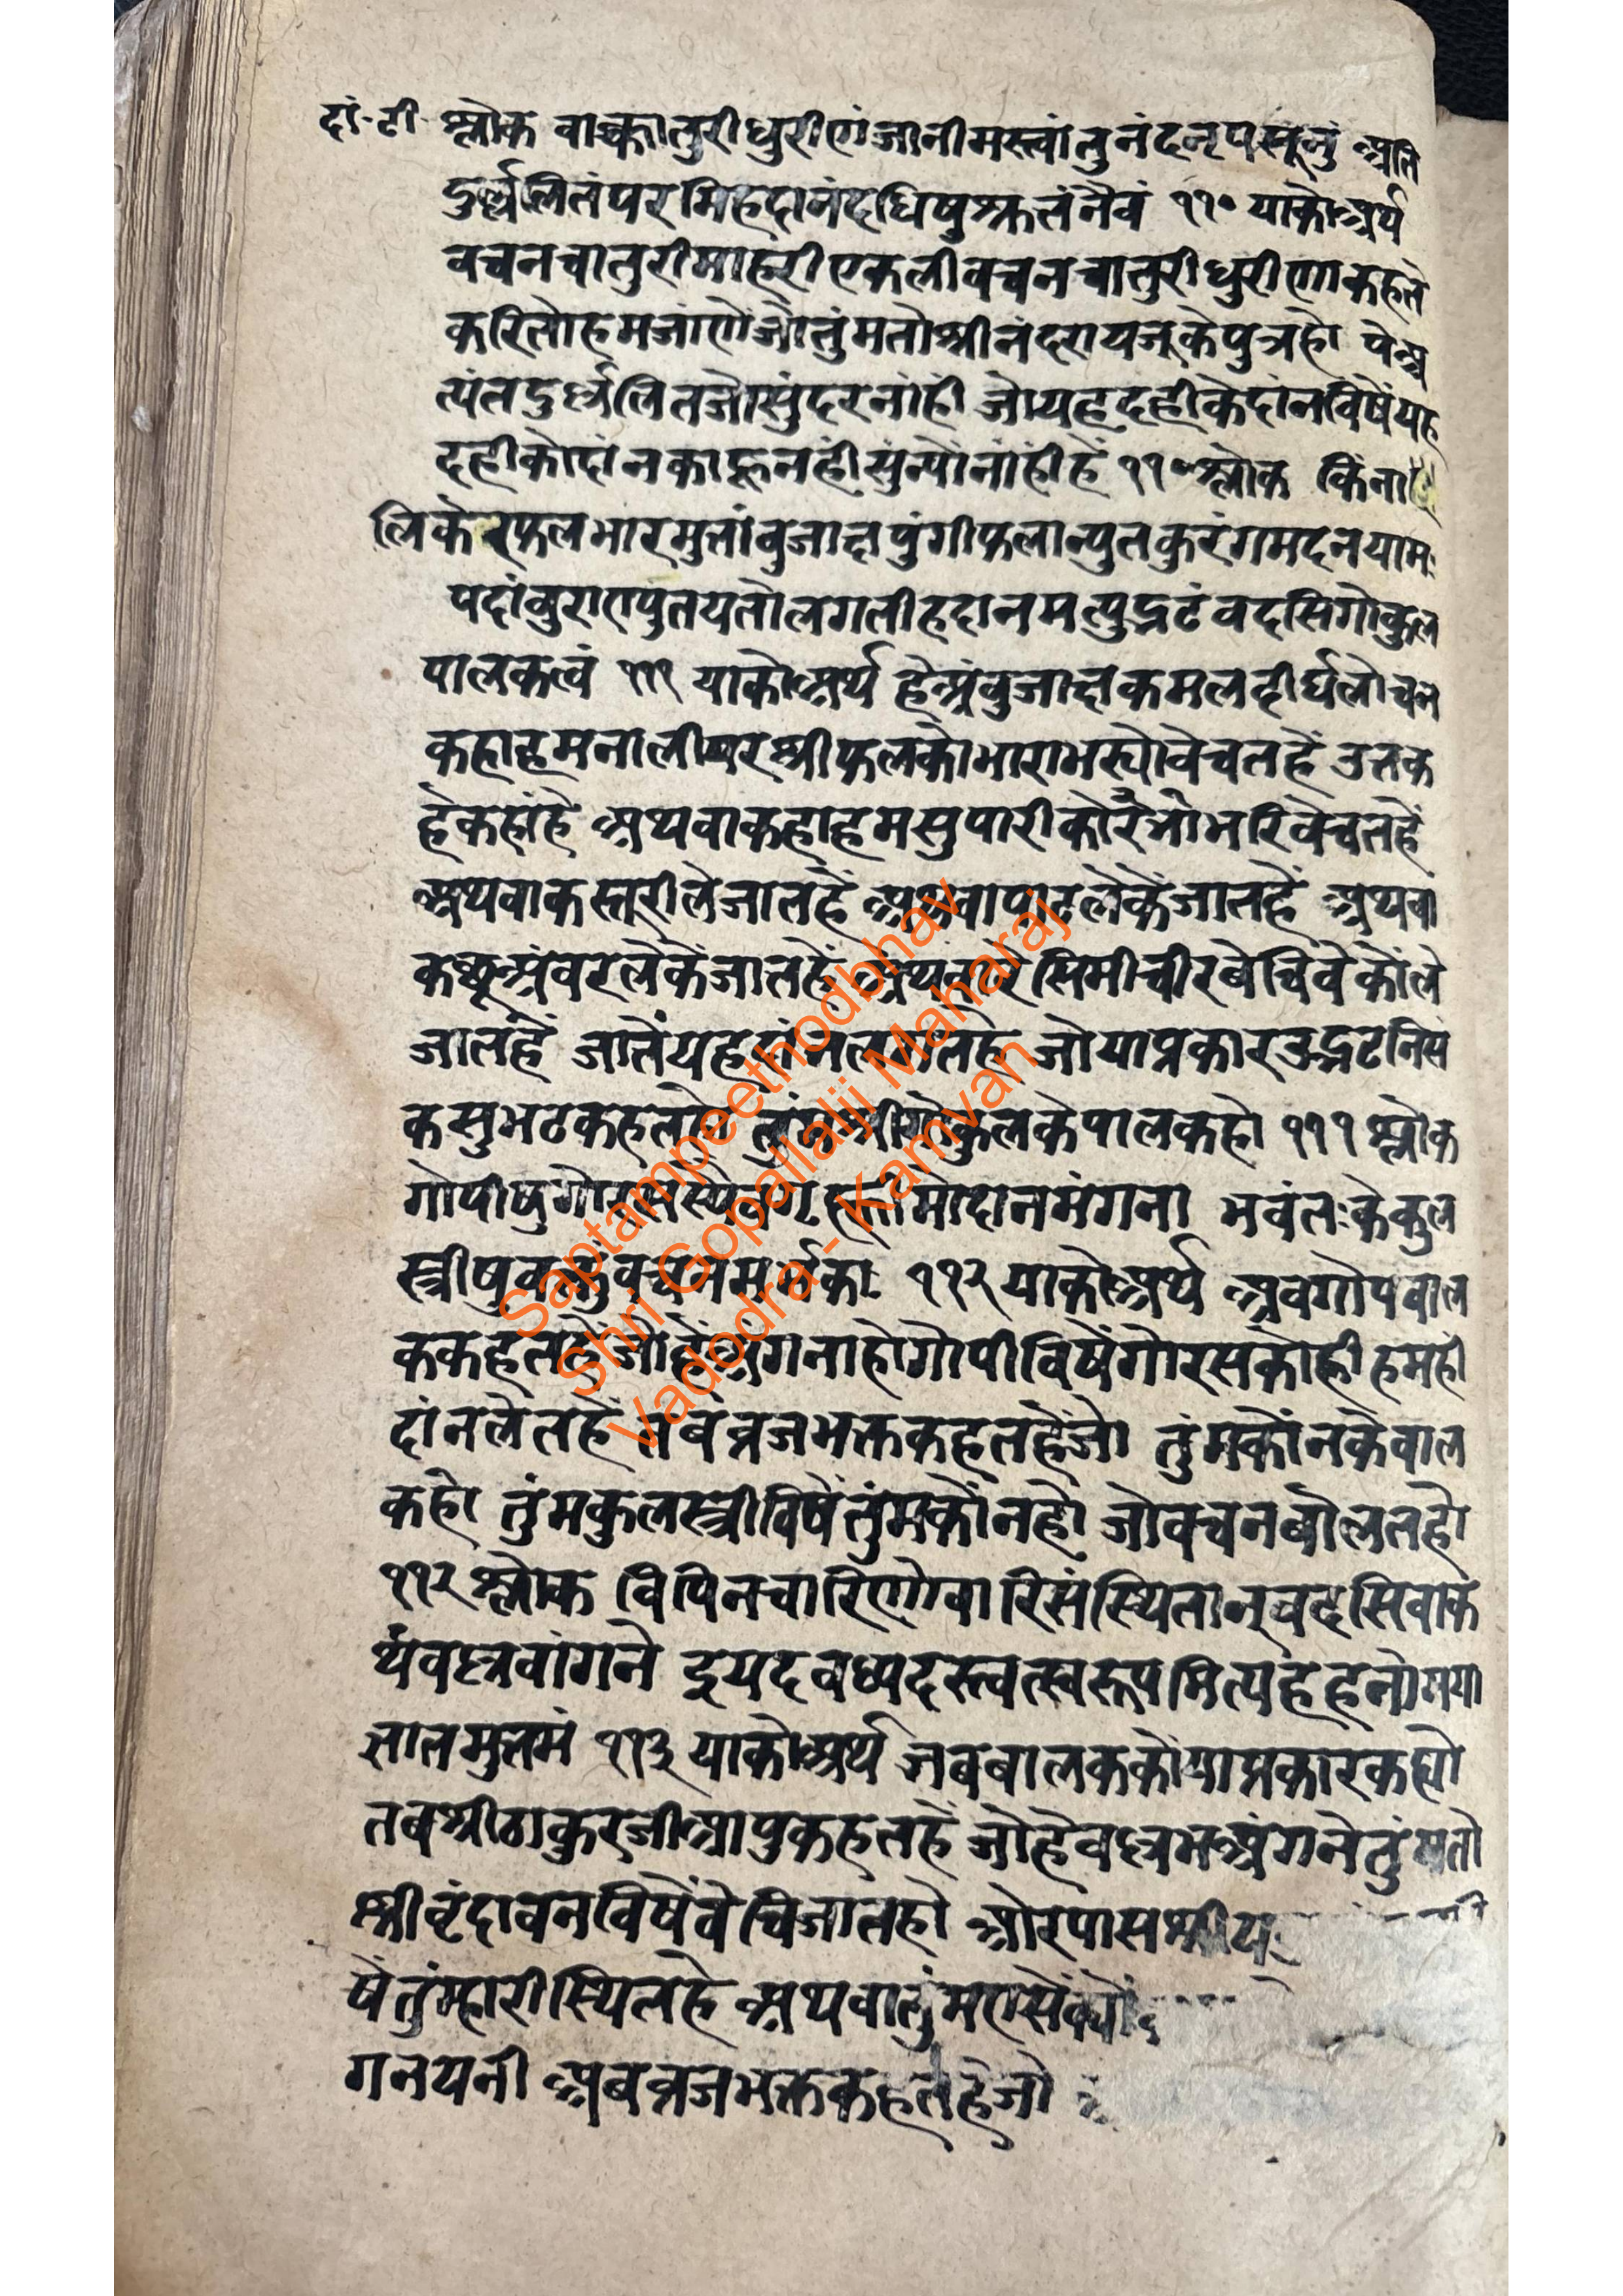 दां·टी· श्लोक वाक्चातुरीधुरीणंजानीमस्त्वांतुनंदनृपसूनुं अति
दुर्ल्ललितंपरमिहदानंदधिषुश्रुतंनैवं ११० याकोअर्थ
वचनचातुरीमाहरीएकलीवचनचातुरीधुरीणकहत
करितोहमजांणेंजोतुंमतोश्रीनंदरायजूकेपुत्रहो पेअ
त्यंतदुर्ल्ललितजोसुंदरनांहीं जोयहदहीकेदांनविषेंयाह
दहीकोदांनकाहूनहींसुंन्योंनांहींहें ११० श्लोक किंना
लिकेरफलभारमुतांबुजाक्षपुंगीफलान्युतकुरंगमदनयामः
पदांबुराण्युतयतोलगतीहदानमत्युद्भटंवदसिगोकुल
पालकत्वं १११ याकोअर्थ हेअंबुजाक्षकमलदीर्घलोचन
कहाहमनालीयरश्रीफलकोभाराभरयोवेचतहें उतक
हेंकहांहे अथवाकहाहमसुपारीकोरेंभोभरिवेचतहें
अथवाकस्तूरीलेजातहें अथवापाटलेकेंजातहें अथवा
कछूअंबरलेकेंजातहें अथवारेसिमीचीरबेचिवेकोंले
जातहें जातेंयहदांनलगतहे जोयाप्रकारउद्भटनिसं
कसुभटकहतहो तुंमश्रीगोकुलकेपालकहो १११ श्लोक
गोपीषुगोरसस्यैवगृह्णीमोदानमंगना भवंतःकेकुल
स्त्रीषुवक्तुंवचनमर्भकाः ११२ याकोअर्थ अबगोपबाल
ककहतहेंजोहेअंगनाहोगोपीविषेंगोरसकोहीहमहीं
दांनलेतहें तबव्रजभक्तकहतहेंजो तुंमकोंनकेबाल
कहो तुंमकुलस्त्रीविषेंतुंमकोंनहो जोवचनबोलतहो
११२ श्लोक विपिनचारिणोवारिसंस्थितानूवदसिवाक
थंवक्षवांगने इयदवध्यदस्त्वत्स्वरूपमित्यहहनो
लालमुत्तमं ११३ याकोअर्थ जबबालककोंयाप्रकारकह्यो
तबश्रीठाकुरजीआपुकहतहें जोहेवक्षभअंगनेतुंमतो
श्रीवृंदावनविषेंवेचिजातहो ओरपास
षेंतुंम्हारीस्थितहे अथवातुंम
गनयनी अबव्रजभक्तकहतहेजो
Saptampeethodbhav
Shri Gopallalji Maharaj
Vadodra - Kamvan